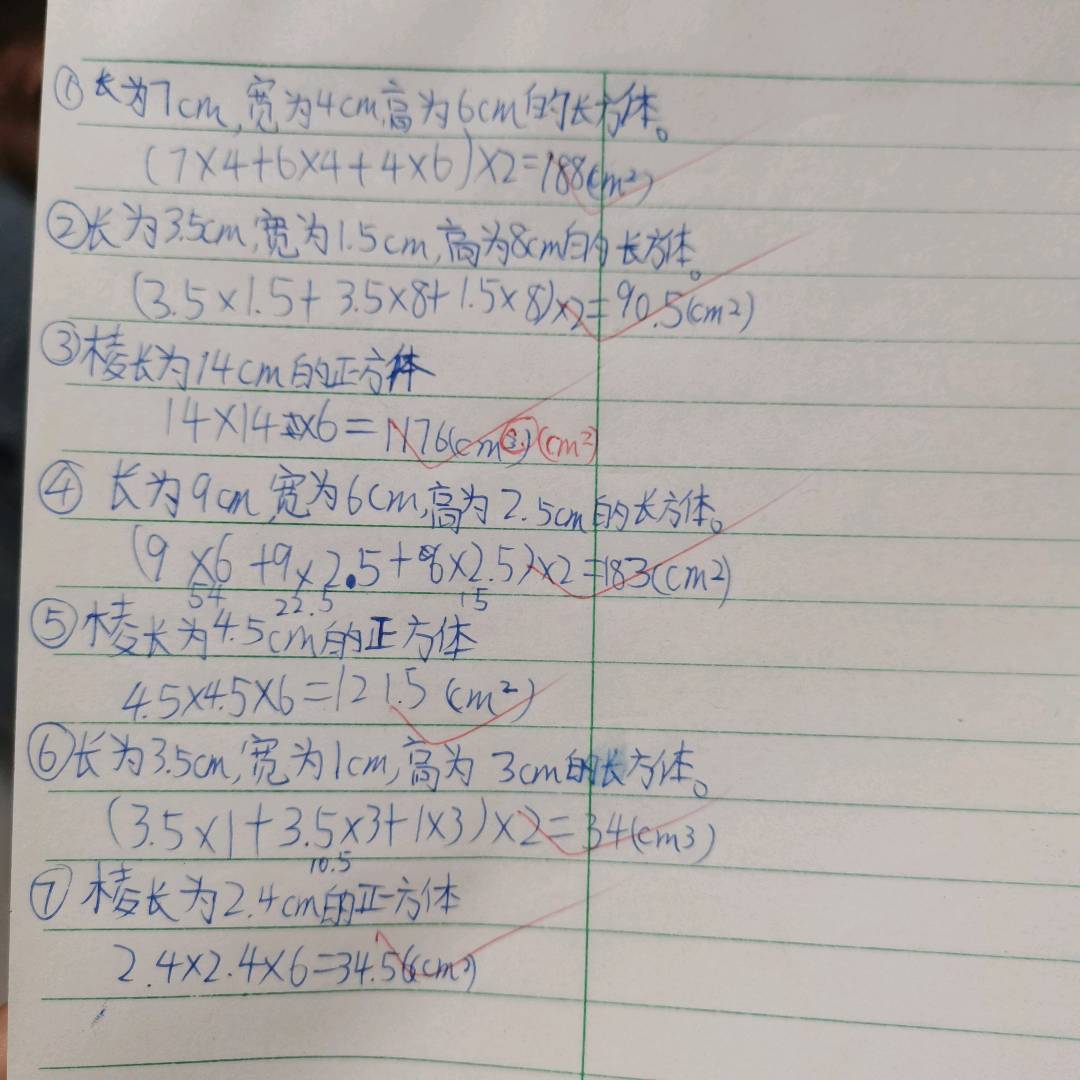 ①长为7cm,宽为4cm,高为6cm的长方体。
(7×4+6×4+4×6)×2=188(cm²)
②长为3.5cm,宽为1.5cm,高为8cm的长方体。
(3.5×1.5+3.5×8+1.5×8)×2=90.5(cm2)
③棱长为14cm的正方体
14×14×6=1176(cm3)(cm²)
④ 长为9cm,宽为6cm,高为2.5cm的长方体。
(9×6+9×2.5+6×2.5)×2=183(cm2)
54 22.5 15
⑤棱长为4.5cm的正方体
4.5×4.5×6=121.5(cm²)
⑥长为3.5cm,宽为1cm,高为3cm的长方体。
(3.5×1+3.5×3+1×3)×2=34(cm3)
10.5
⑦ 棱长为2.4cm的正方体
2.4×2.4×6=34.56(cm²)